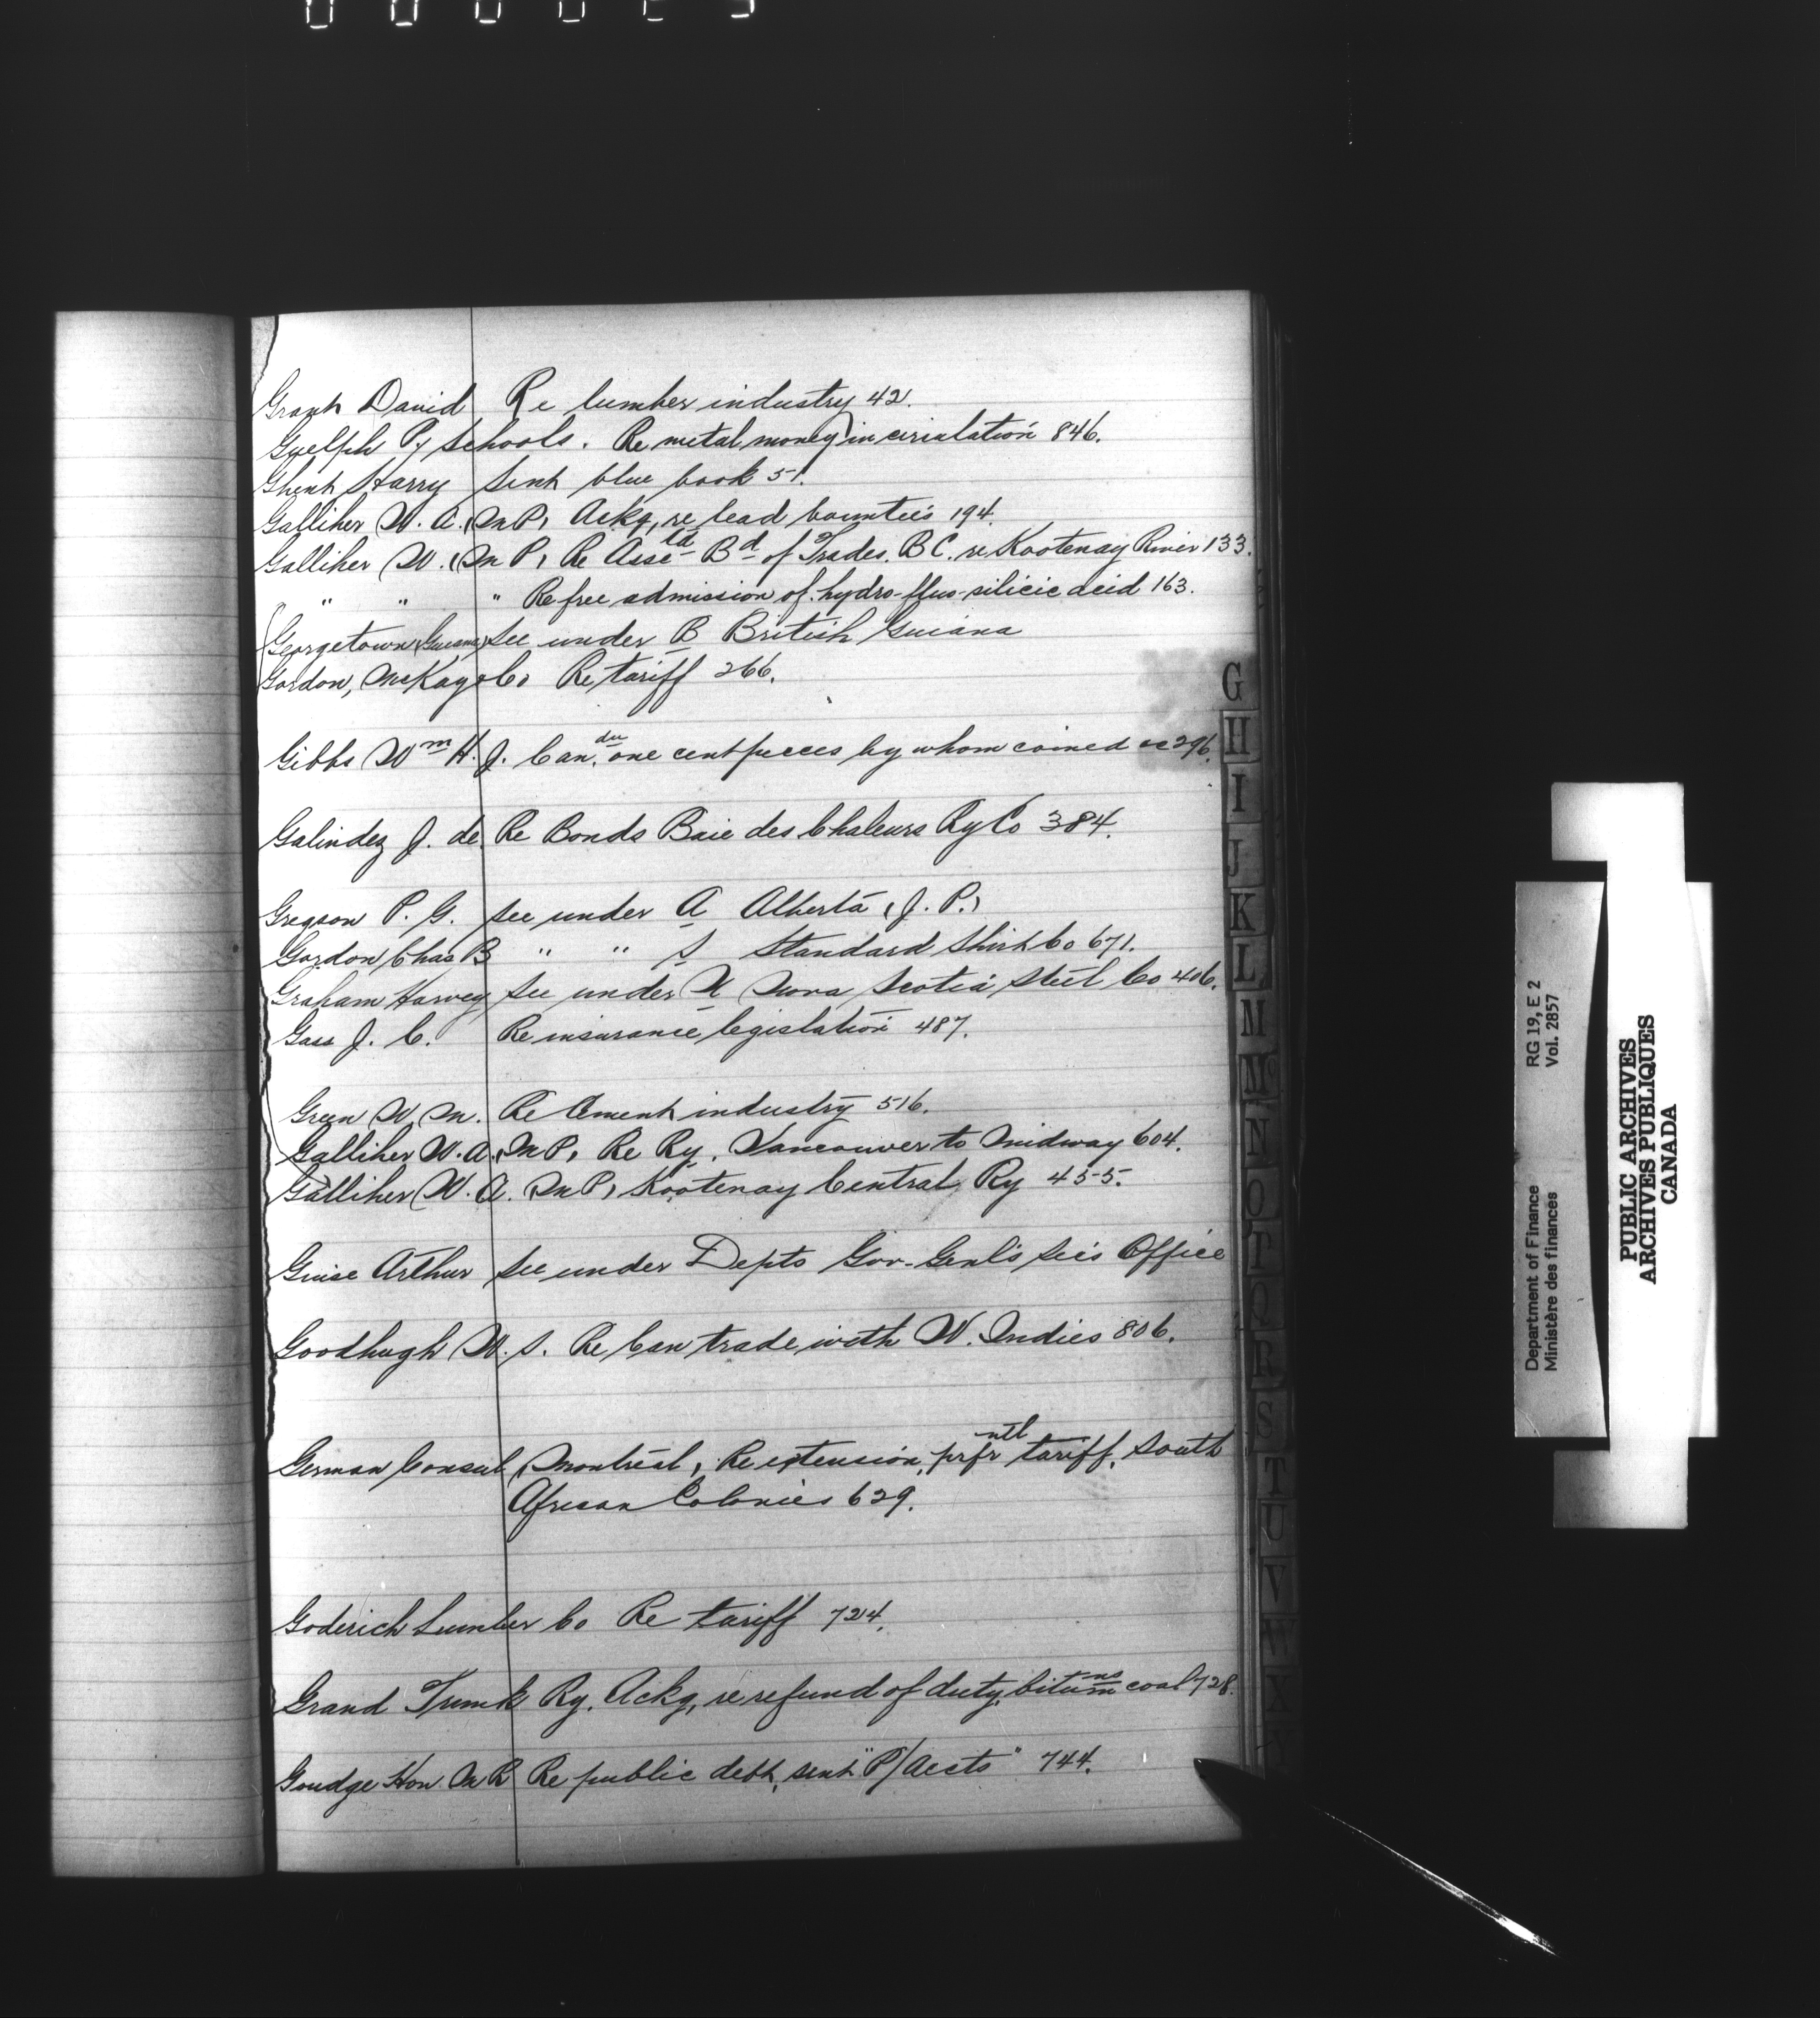 Grant David Re lumber industry 42.
Guelph P/ Schools. Re metal money in circulation 846.
Ghent Harry Sent blue book 51.
Galliher W. A. (M P) Ackg, re lead bounties 194.
Galliher W. (M P) Re Asse td Bd of Trades. B C. re Kootenay River 133.
" " " Re free admission of hydro-fluo-silicic acid 163.
Georgetown (Guiana) See under B British Guiana
Gordon, McKay & Co Re tariff 266.
Gibbs Wm H. J. Can. du one cent pieces by whom coined &c 296.
Galindez J. de Re Bonds Baie des Chaleurs Ry Co 384.
Gregson P. G. See under A Alberta (J. P.)
Gordon Chas B " " S Standard Shirt Co 671.
Graham Harvey See under N Nova Scotia Steel Co 406.
Gass J. C. Re insurance legislation 487.
Green W. M. Re Cement industry 516.
Galliher W. A. (M P) Re Ry. Vancouver to Midway 604.
Galliher W. A. (M P) Kootenay Central Ry 455.
Guise Arthur See under Depts Gov-Genl's Sec's Office
Goodhugh W. S. Re Can trade with W. Indies 806.
German Consul (Montreal) Re extension, prfr ntl tariff, South
African Colonies 629.
Goderich Lumber Co Re tariff 724.
Grand Trunk Ry. Ackg, re refund of duty, bitumns coal 728.
Goudge Hon M R Re public debt, sent "P/Accts" 744.
G
H
I
J
K
L
M
Mc
N
O
P
Q
R
S
T
U
V
W
X
RG 19, E 2
Vol. 2857
Department of Finance
Ministère des finances
PUBLIC ARCHIVES
ARCHIVES PUBLIQUES
CANADA